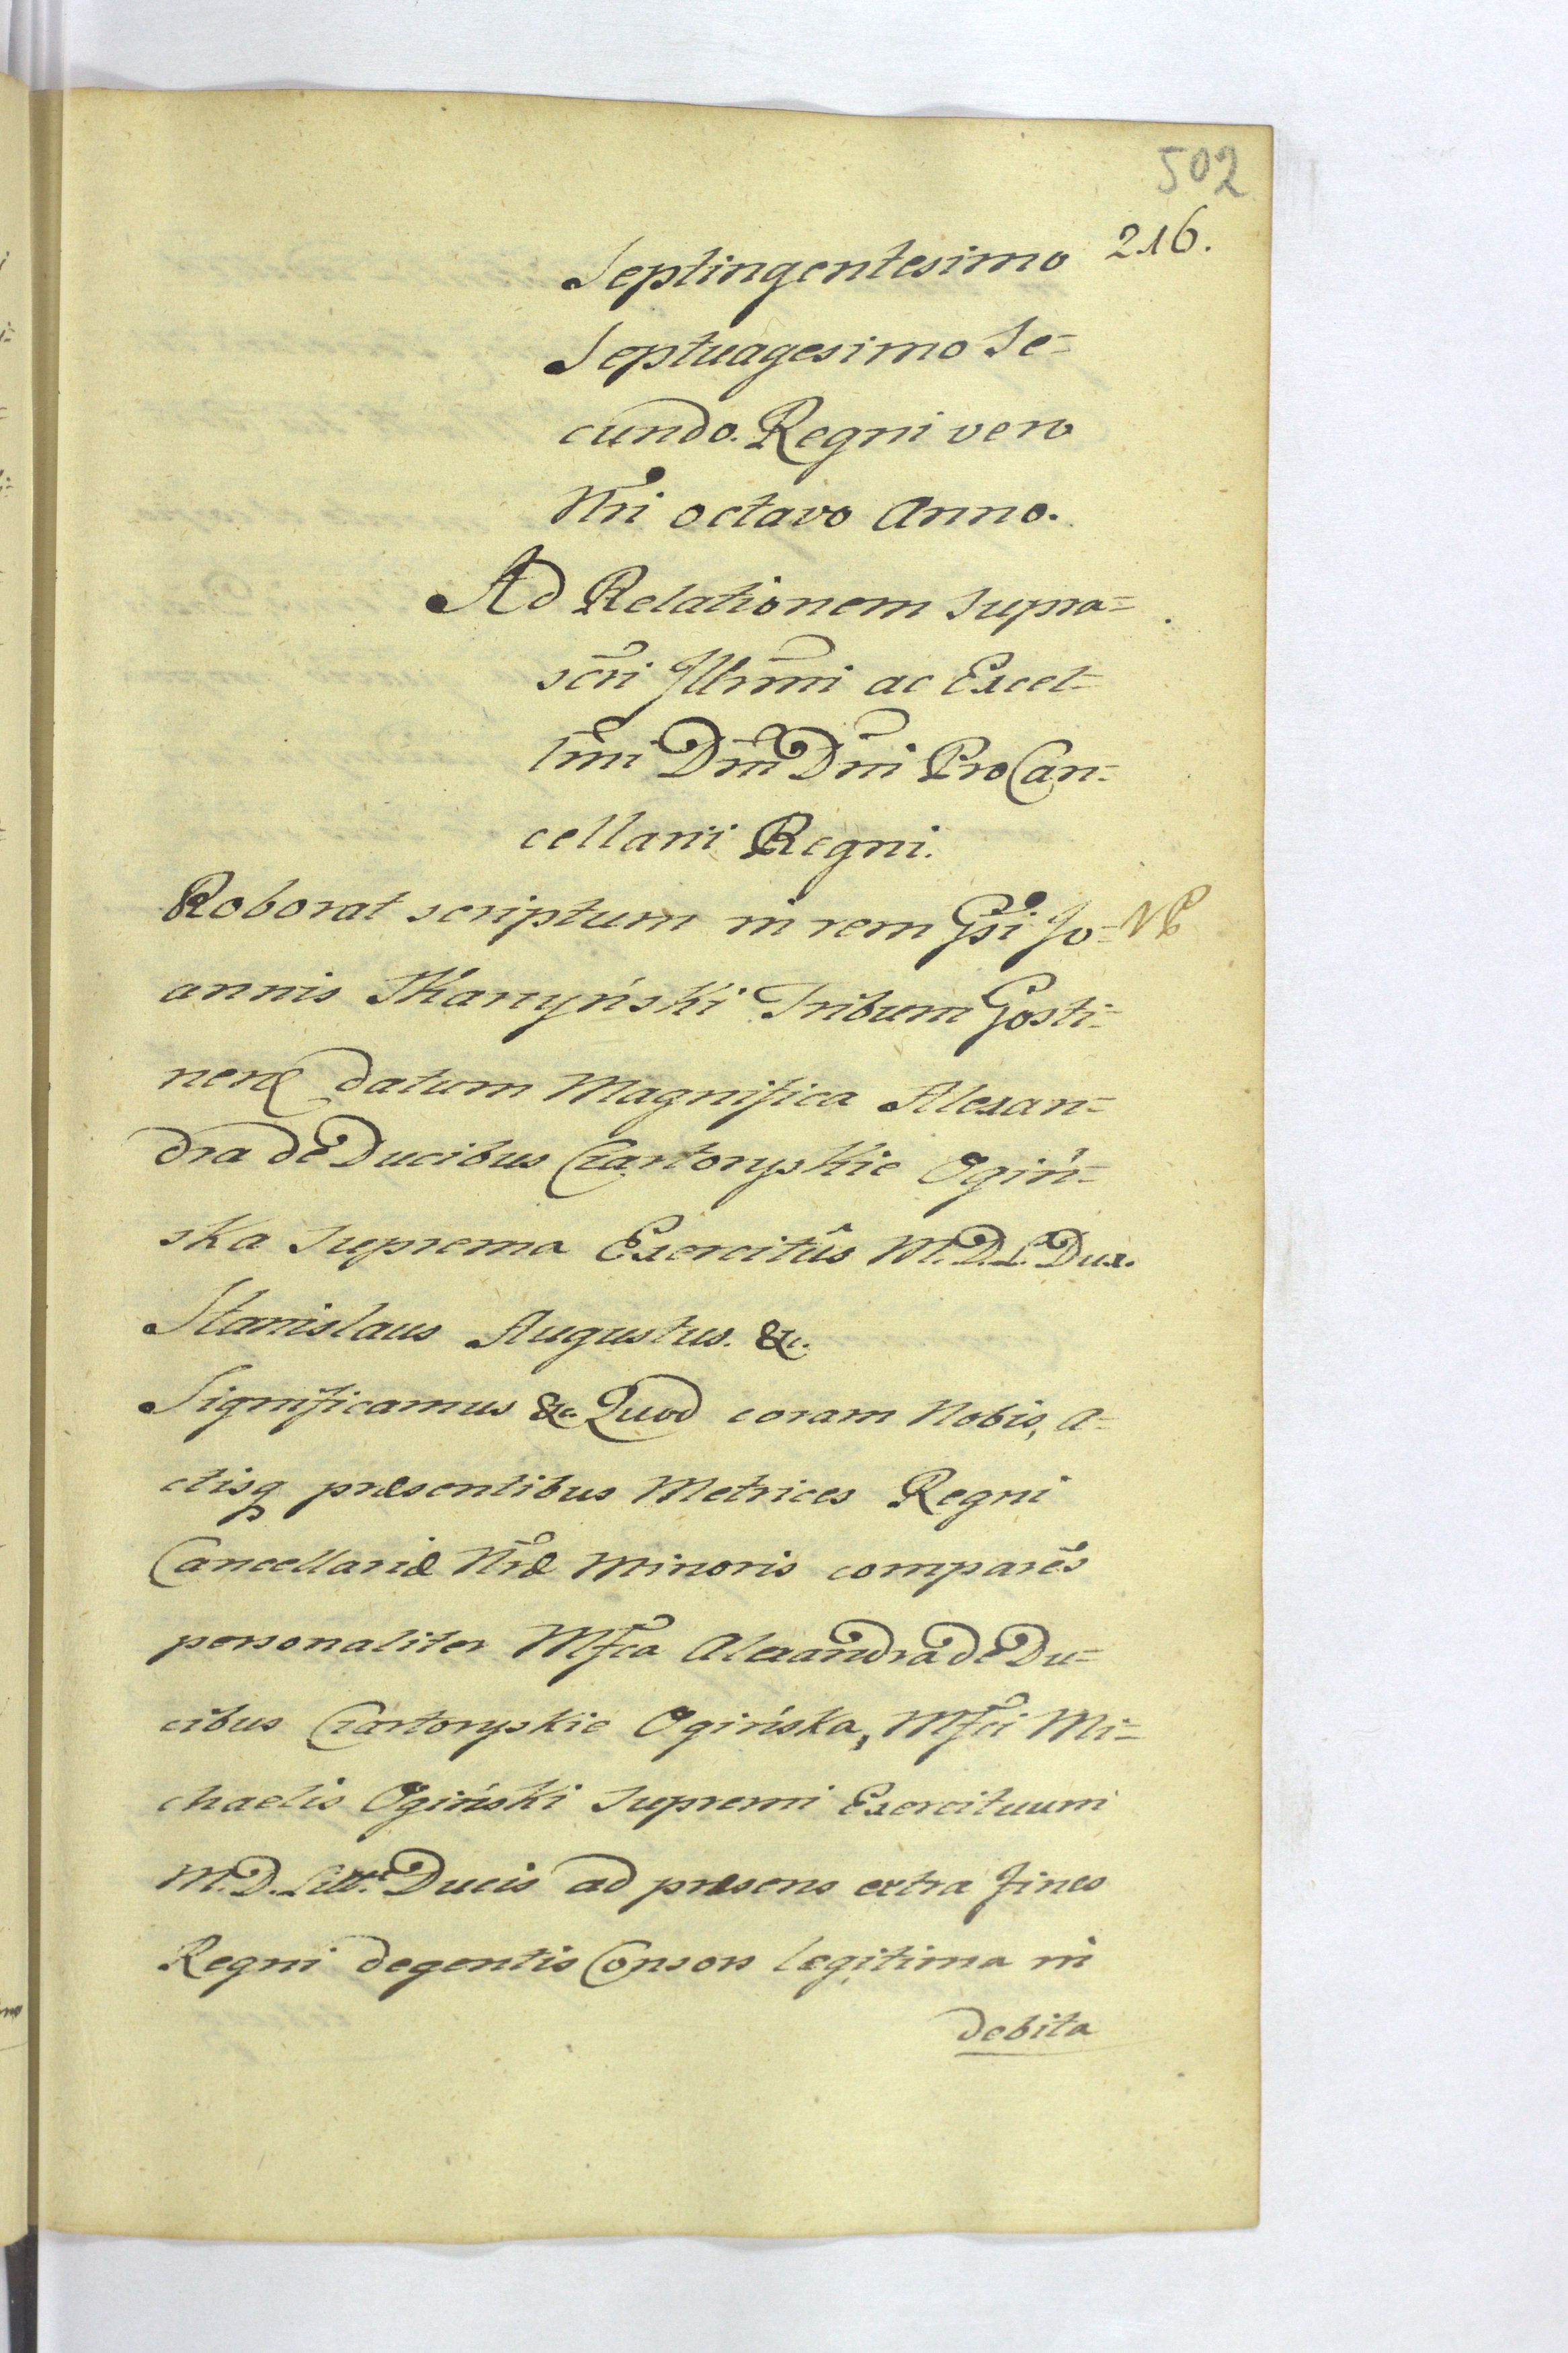 502
216.
Septingentesimo
Septuagesimo Se=
cundo. Regni vero
Nri octavo Anno.
Ad Relationem supra=
scri Illrmi ac Excel=
lmi Dni Dni ProCan=
cellarii Regni.
Roborat scriptum in rem Gsi Jo=
annis Skarzyński Tribuni Gosti=
nen̄ datum Magnifica Alexan=
dra de Ducibus Czartoryskie Ogiń=
ska Suprema Exercitûs M. D. L. Dux.
Stanislaus Augustus. &c.
Significamus &c. Quod coram Nobis, A=
ctisq præsentibus Metrices Regni
Cancellariæ Nræ Minoris comparēs
personaliter Mfca Alexandra de Du=
cibus Czartoryskie Ogińska, Mfci Mi=
chaelis Ogiński Supremi Exercituum
M. D. Litt. Ducis ad præsens extra fines
Regni degentis Consors legitima in
debita